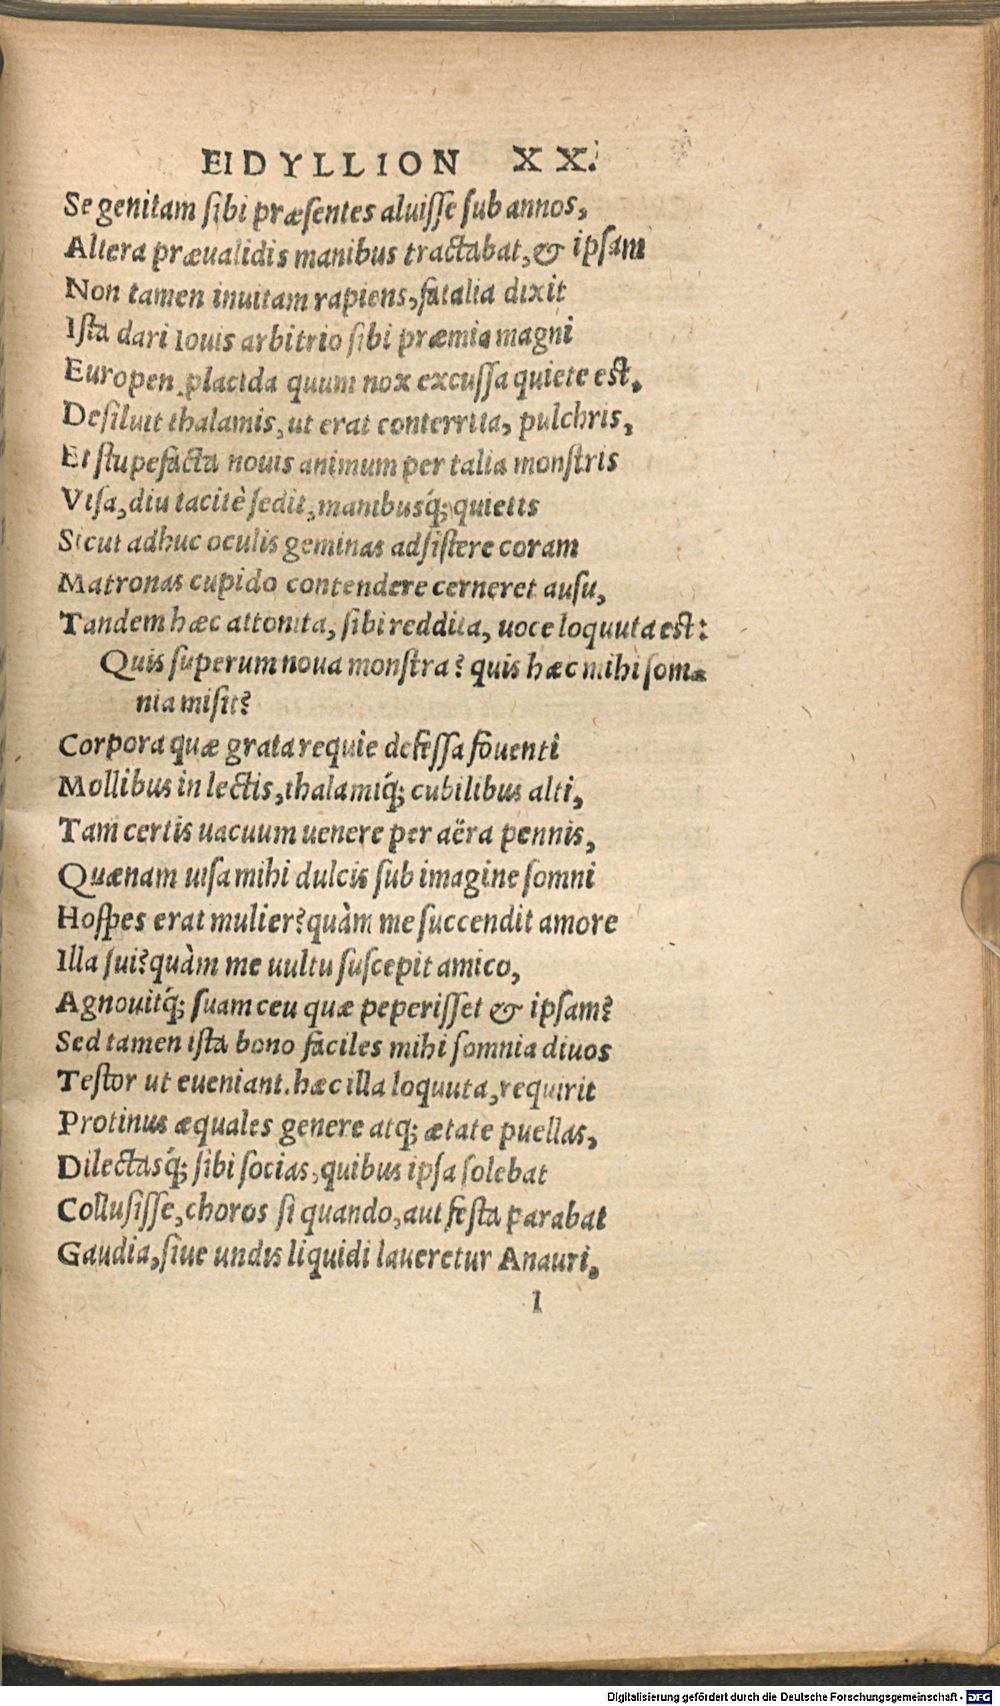 EIDYLLION XX.
Se genitam ſibi præſentes aluiſſe ſub annos,
Altera præualidis manibus tractabat, & ipſam
Non tamen inuitam rapiens, fatalia dixit
Iſta dari Iouis arbitrio ſibi præmia magni
Europen. placida quum nox excuſſa quiete eſt,
Deſiluit thalamis, ut erat conterrita, pulchris,
Et ſtupefacta nouis animum per talia monſtris
Viſa, diu tacitè ſedit, manibusq́; quietis
Sicut adhuc oculis geminas adſiſtere coram
Matronas cupido contendere cerneret auſu,
Tandem hæc attonita, ſibi reddita, uoce loquuta eſt:
Quis ſuperum noua monſtra? quis hæc mihi ſom-
nia miſit?
Corpora quæ grata requie defeſſa fouenti
Mollibus in lectis, thalamiq́; cubilibus alti,
Tam certis uacuum uenere per aëra pennis,
Quænam uiſa mihi dulcis ſub imagine ſomni
Hoſpes erat mulier? quàm me ſuccendit amore
Illa ſui? quàm me uultu ſuſcepit amico,
Agnouitq́; ſuam ceu quæ peperiſſet & ipſam?
Sed tamen iſta bono faciles mihi ſomnia diuos
Teſtor ut eueniant. hæc illa loquuta, requirit
Protinus æquales genere atq; ætate puellas,
Dilectasq́; ſibi ſocias, quibus ipſa ſolebat
Colluſiſſe, choros ſi quando, aut feſta parabat
Gaudia, ſiue undis liquidi laueretur Anauri,
l
Digitalisierung gefördert durch die Deutsche Forschungsgemeinschaft - DFG